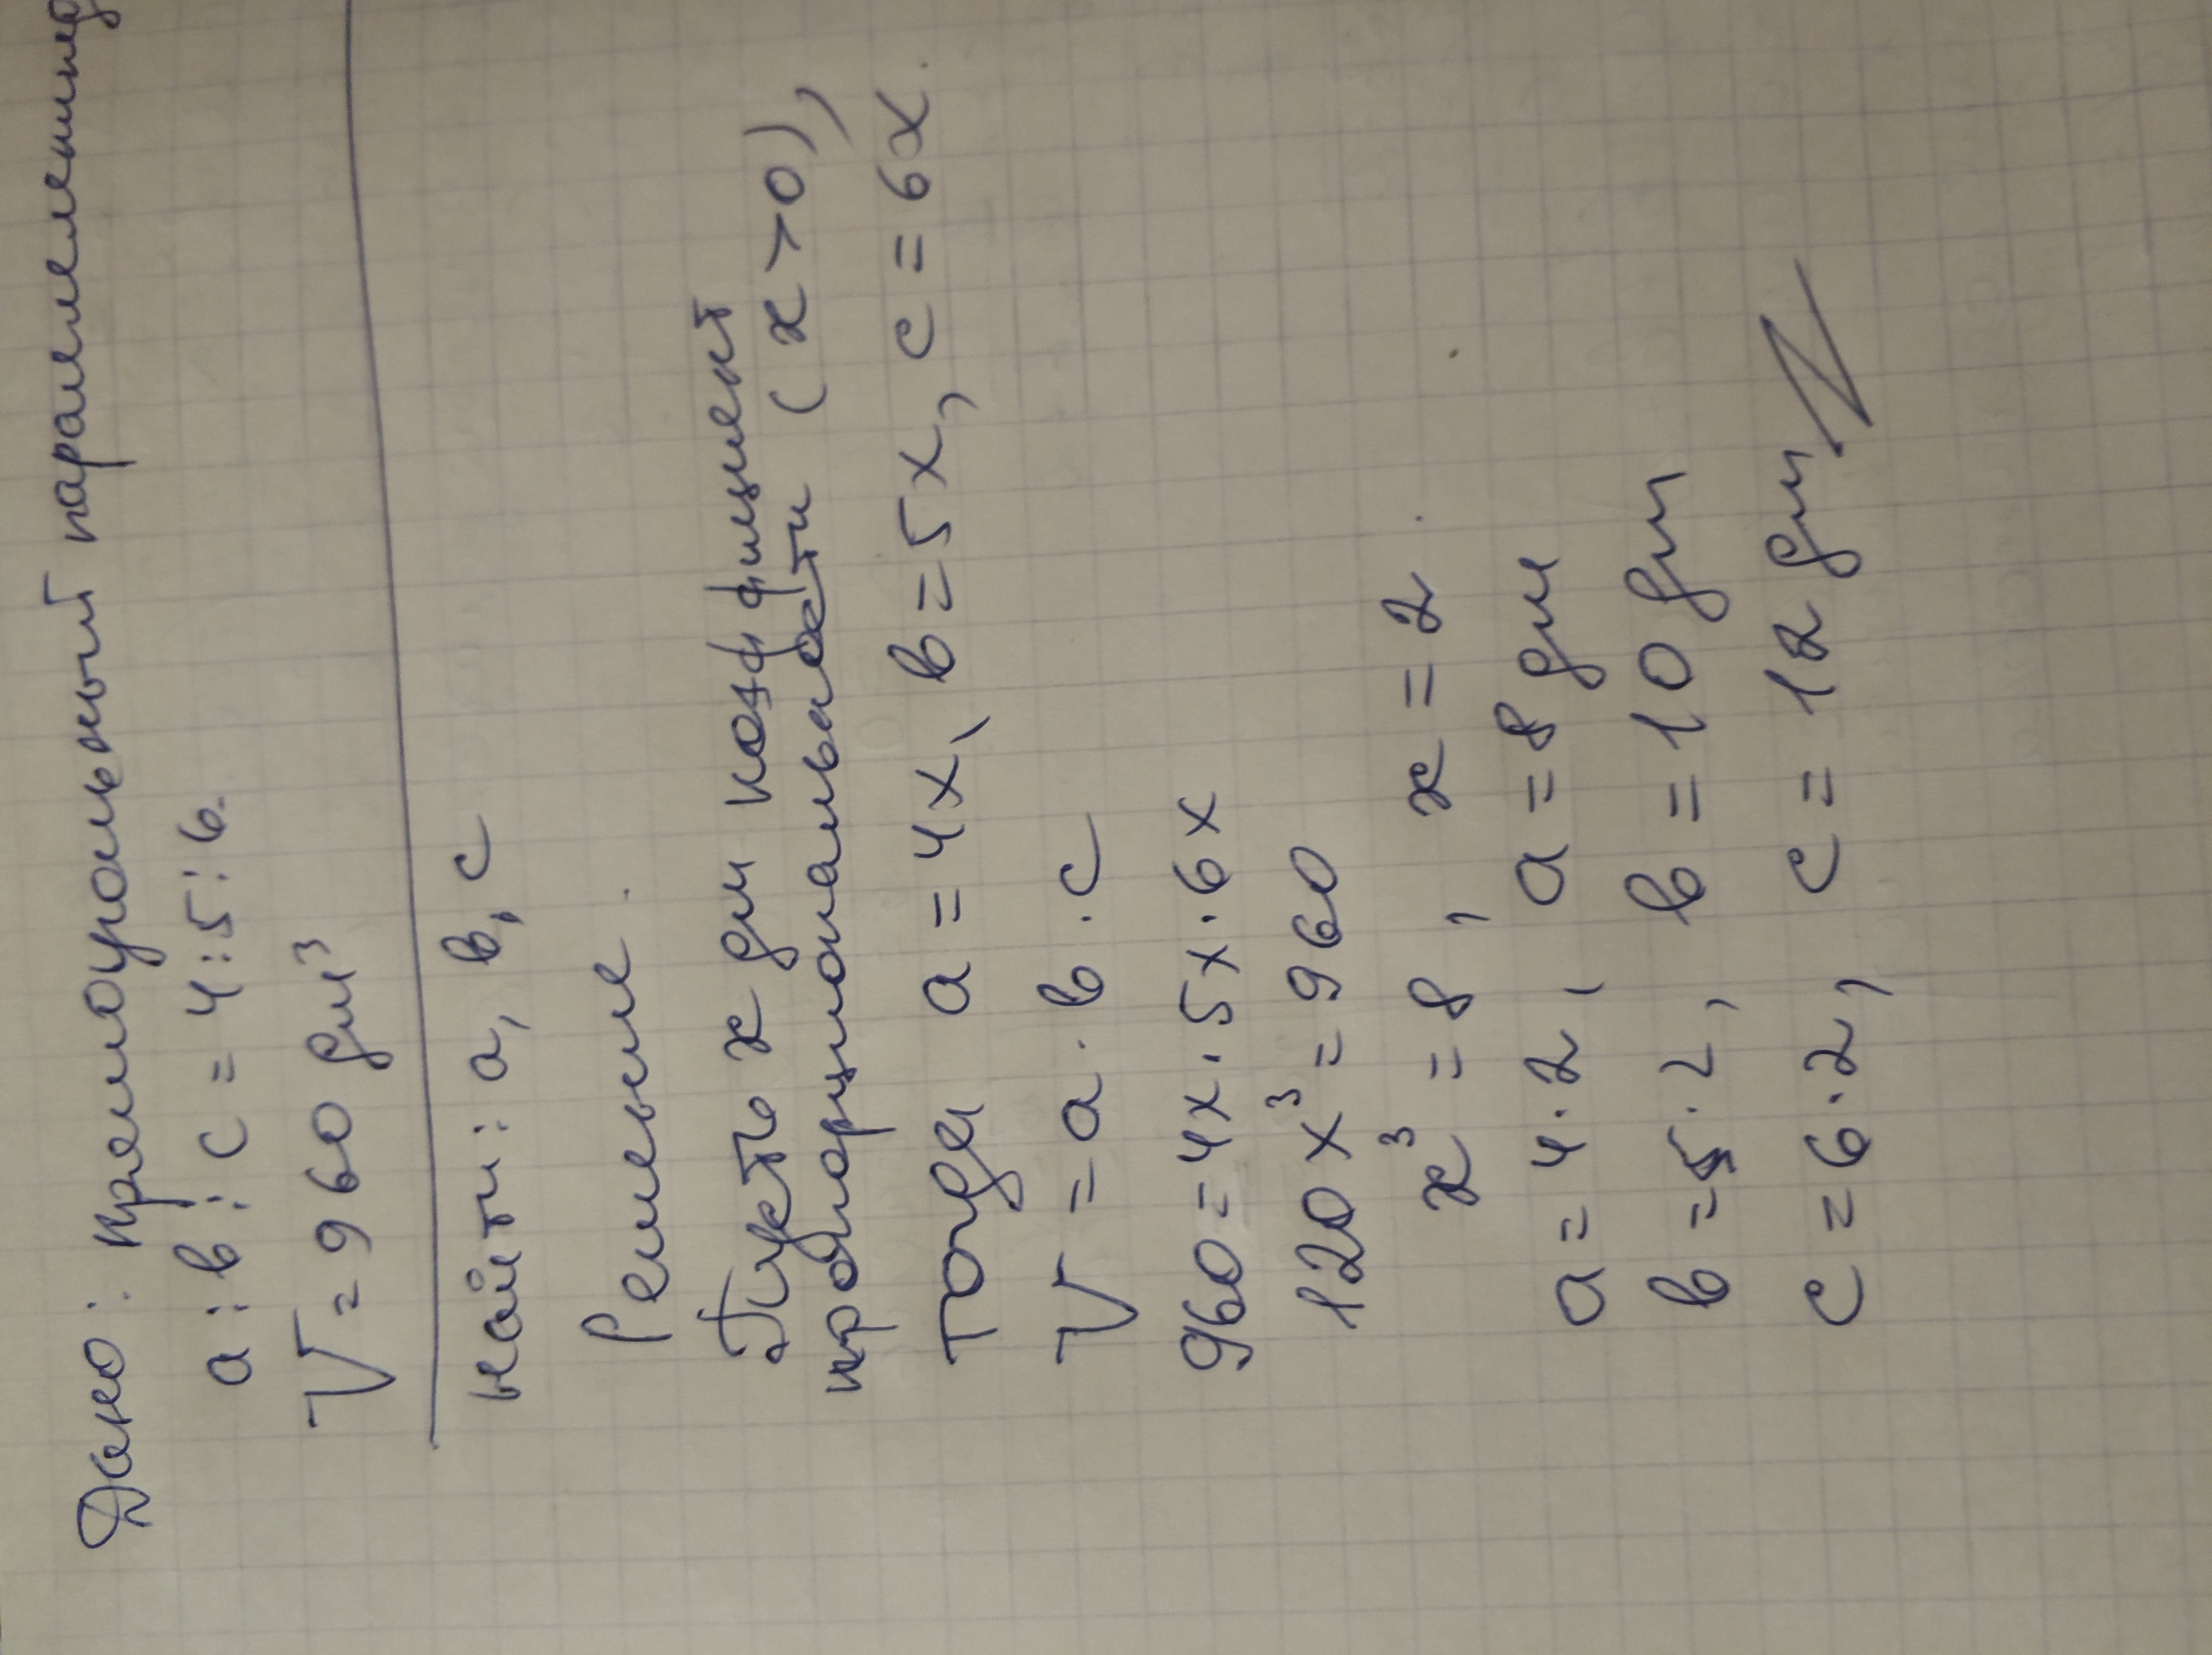 Дано: прямоугольный параллелепипед
a : b : c = 4 : 5 : 6.
V = 960 дм³
найти: a, b, c
Решение.
Пусть x дм коэффициент
пропорциональности (x > 0),
тогда a = 4x, b = 5x, c = 6x.
V = a · b · c
960 = 4x · 5x · 6x
120x³ = 960
x³ = 8, x = 2.
a = 4 · 2, a = 8 дм
b = 5 · 2, b = 10 дм
c = 6 · 2, c = 12 дм